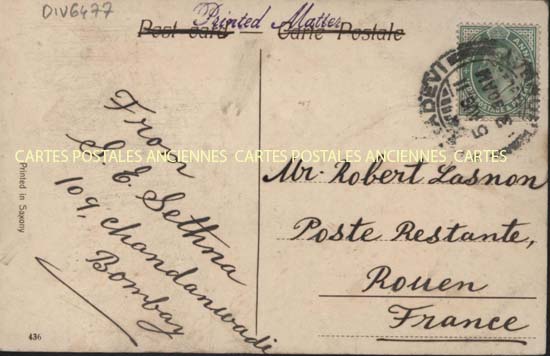 DIV6477
Printed Matter
Post card
Carte Postale
From
S. E. Sethna
109, Chandanwadi
Bombay
Mr. Robert Lasnon
Poste Restante,
Rouen
France
CARTES POSTALES ANCIENNES CARTES POSTALES ANCIENNES
Printed in Saxony
436